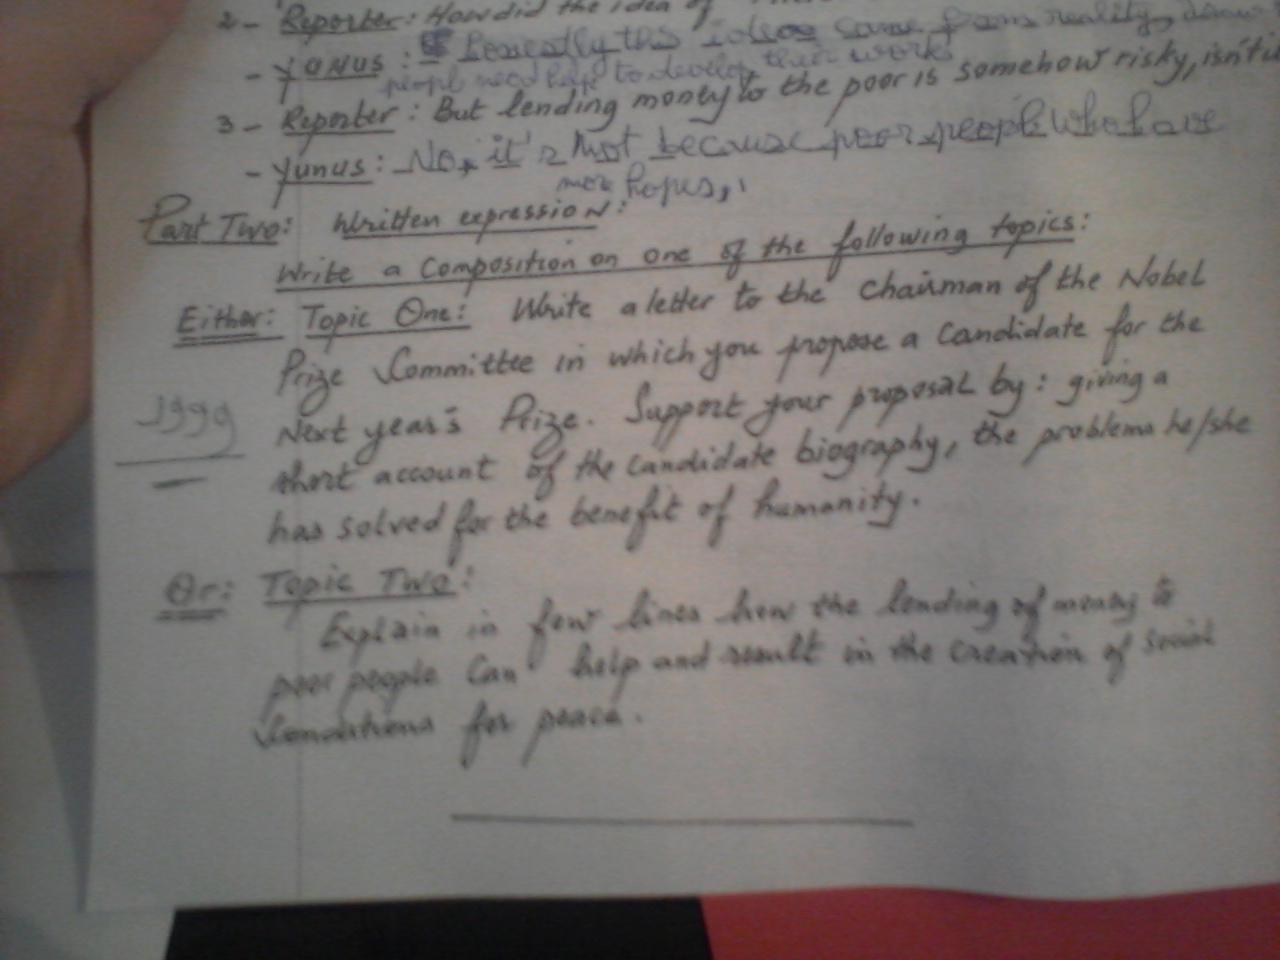 2- Reporter: How did the idea of
- Yunus: this idea came from reality,
people need help to develop their work
3- Reporter: But lending money to the poor is somehow risky, isn't
- Yunus: No, it's not because poor people who have
more hopes,
Part Two: Written expression:
Write a Composition on one of the following topics:
Either: Topic One: Write a letter to the chairman of the Nobel
Prize Committee in which you propose a candidate for the
1999
Next year's Prize. Support your proposal by: giving a
short account of the candidate biography, the problems he/she
has solved for the benefit of humanity.
Or: Topic Two:
Explain in few lines how the lending of money to
poor people can help and result in the creation of social
Conditions for peace.